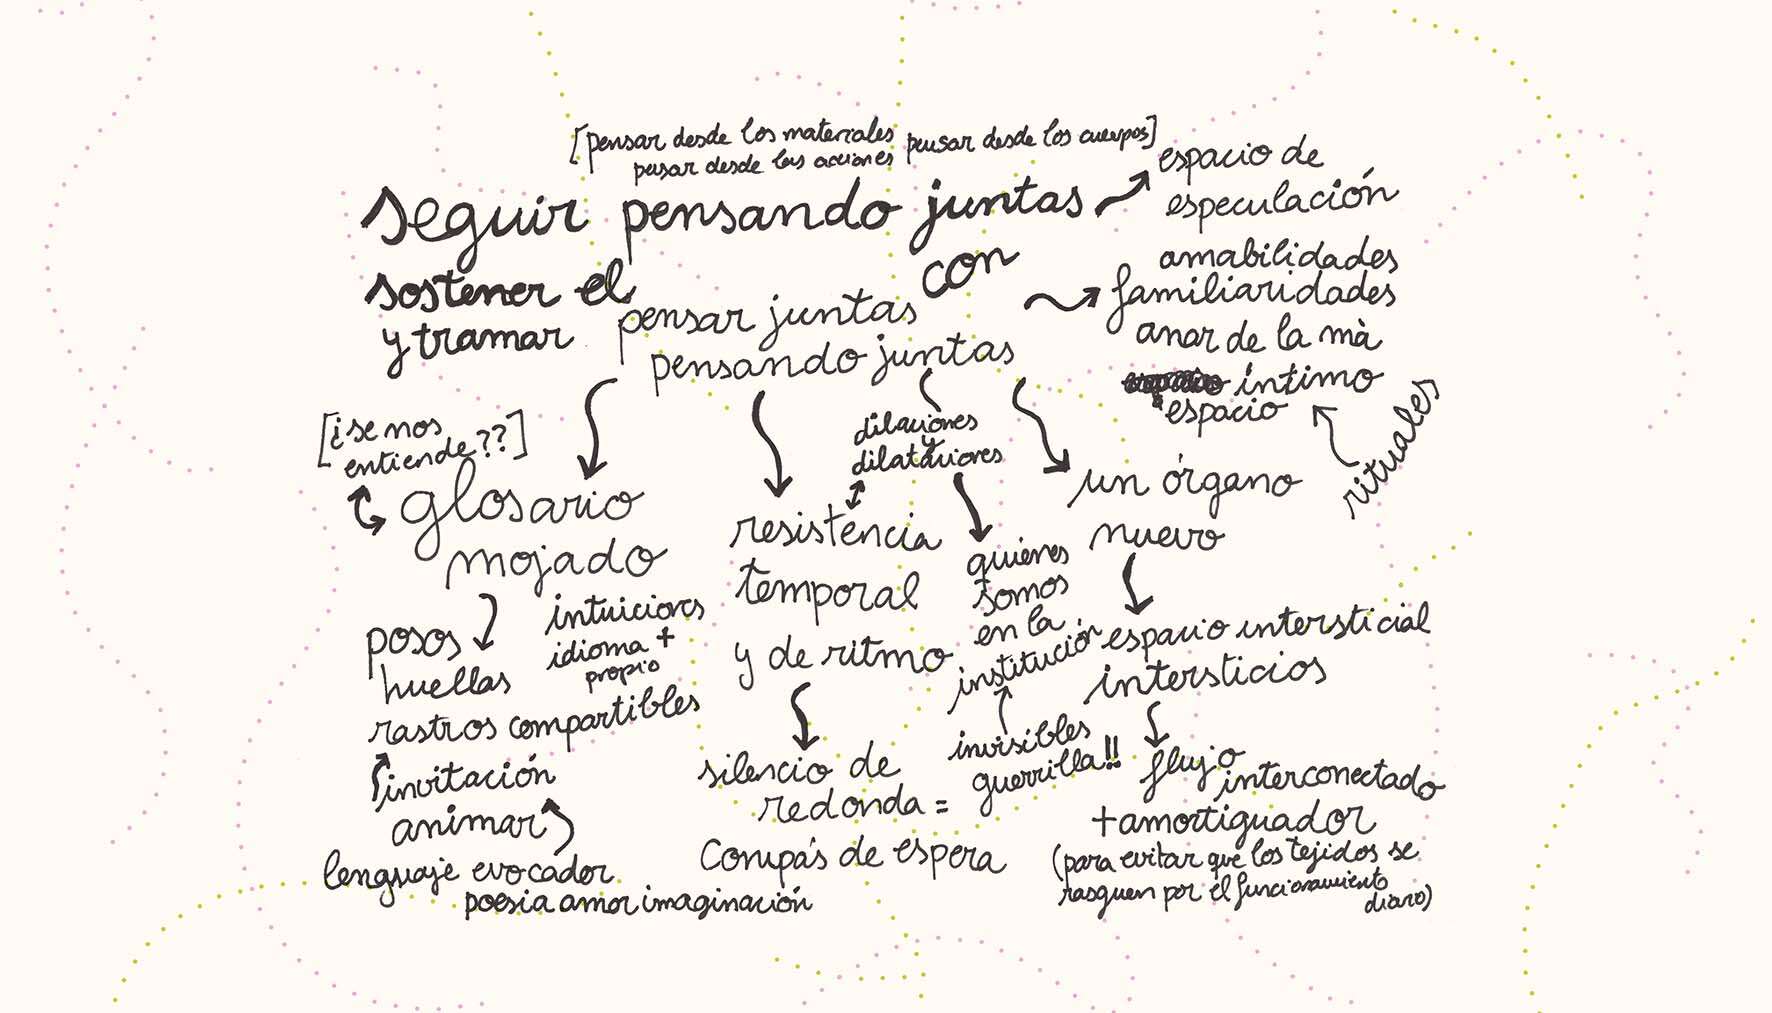 [pensar desde los materiales pensar desde los cuerpos]
pensar desde las acciones
seguir pensando juntas
con
sostener el
y tramar
pensar juntas
pensando juntas
espacio de
especulación
amabilidades
familiaridades
anar de la mà
espacio íntimo
espacio
rituales
[¿se nos
entiende??]
glosario
mojado
posos
huellas
intuiciones
idioma +
propio
rastros compartibles
invitación
animar
lenguaje evocador
poesia amor imaginación
dilaciones
y
dilataciones
resistència
temporal
y de ritmo
silencio de
redonda =
Compás de espera
quiénes
somos
en la
institución
invisibles
guerrilla!!
un órgano
nuevo
espacio intersticial
intersticios
flujo
interconectado
+amortiguador
(para evitar que los tejidos se
rasguen por el funcionamiento
diario)